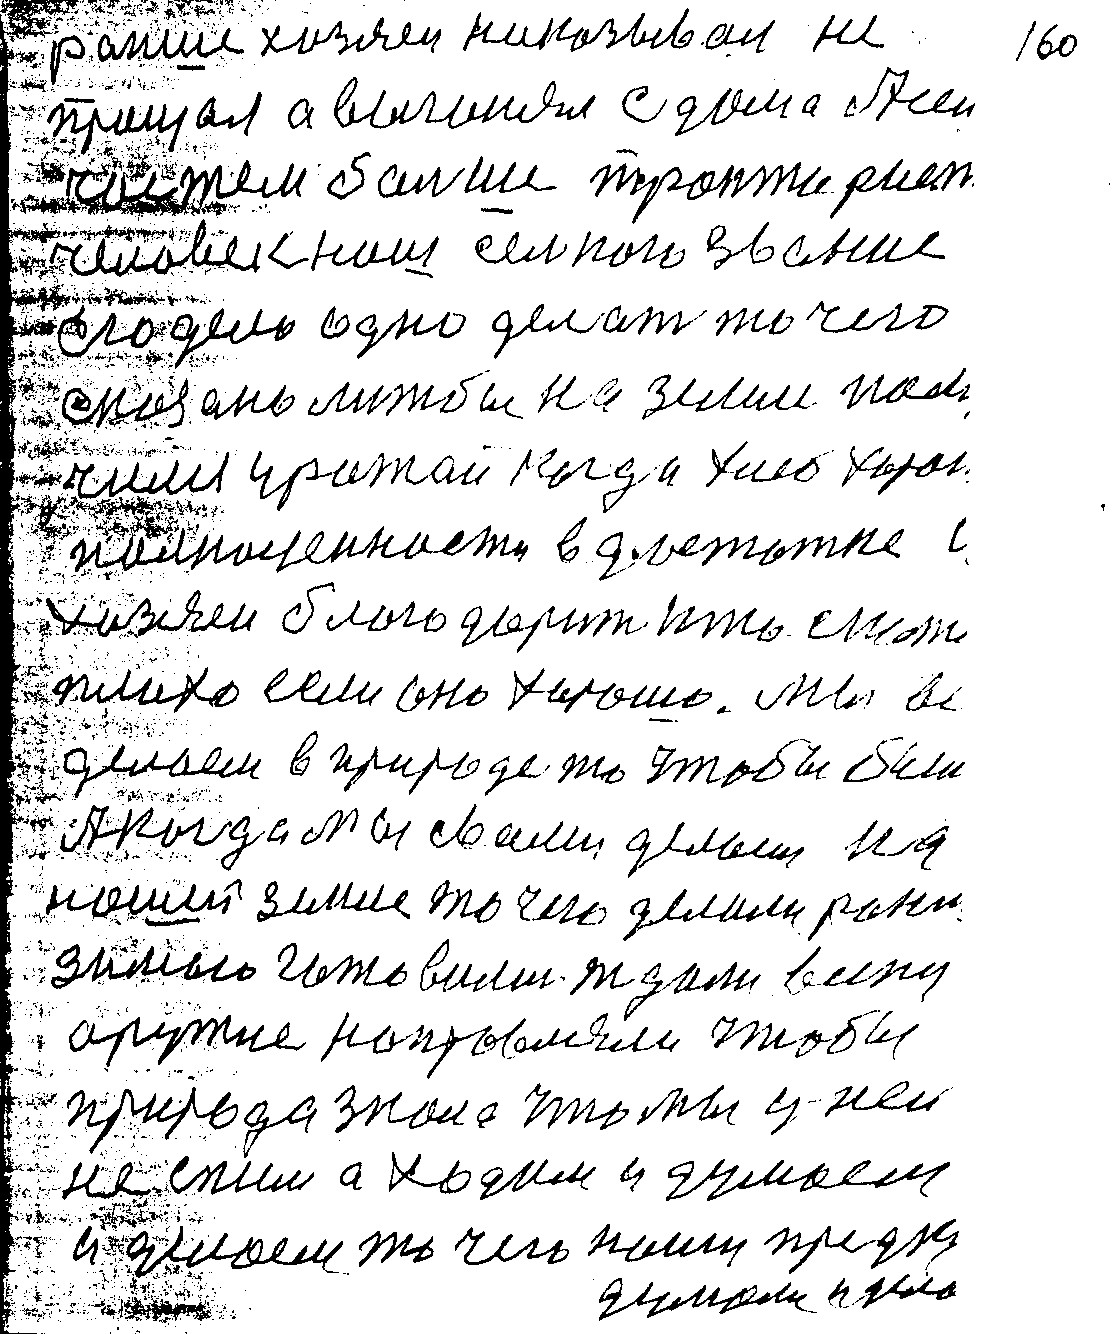 раньше хозяен наказывал не
160
прощал а выгонял с дома А ен
чистем балше
человек наш селкого звание
его дело одно делат то чего
сказано литбы на земли полу
чили урожай когда хлеб хорош
полноценности в достатке и
хозяен благодарит кто сможе
плохо если оно хорошо. Мы вс
делаем в природе то чтобы был
А когда мы свами делаем на
нашей земле то чего делали рани
зимою готовили ждали весну
оружие направляли чтобы
природа знала что мы у ней
не спим а ходим и думаем
и делаем то чего наши предки
думали и дела